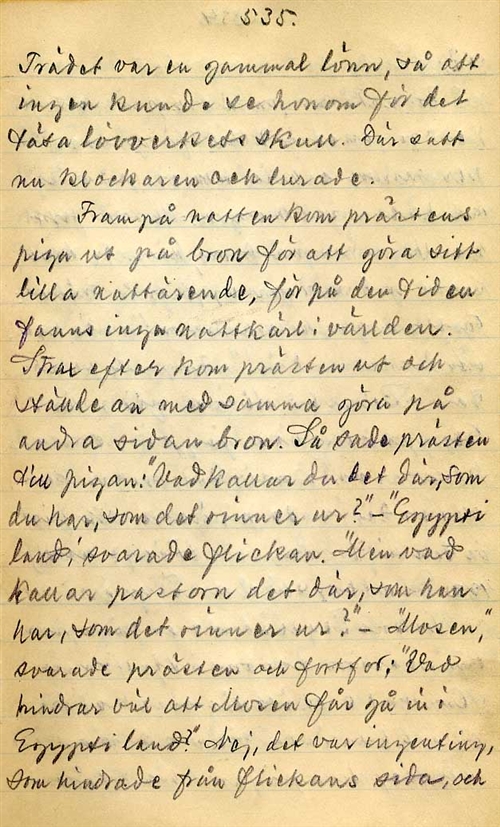 535.
Trädet var en gammal lönn, så att
ingen kunde se honom för det
täta lövverkets skull. Där satt
nu klockaren och lurade.
Frampå natten kom prästens
piga ut på bron för att göra sitt
lilla nattärende, för på den tiden
fanns inga nattkärl i världen.
Strax efter kom prästen ut och
ställde an med samma göra på
andra sidan bron. Så sade prästen
till pigan: "Vad kallar du det där, som
du har, som det rinner ur?" – "Egypti
land", svarade flickan. "Men vad
kallar pastorn det där, som han
har, som det rinner ur?" – "Mosen,"
svarade prästen och fortfor: "Vad
hindrar väl att Mosen får gå in i
Egypti land?" Nej, det var ingenting,
som hindrade från flickans sida, och